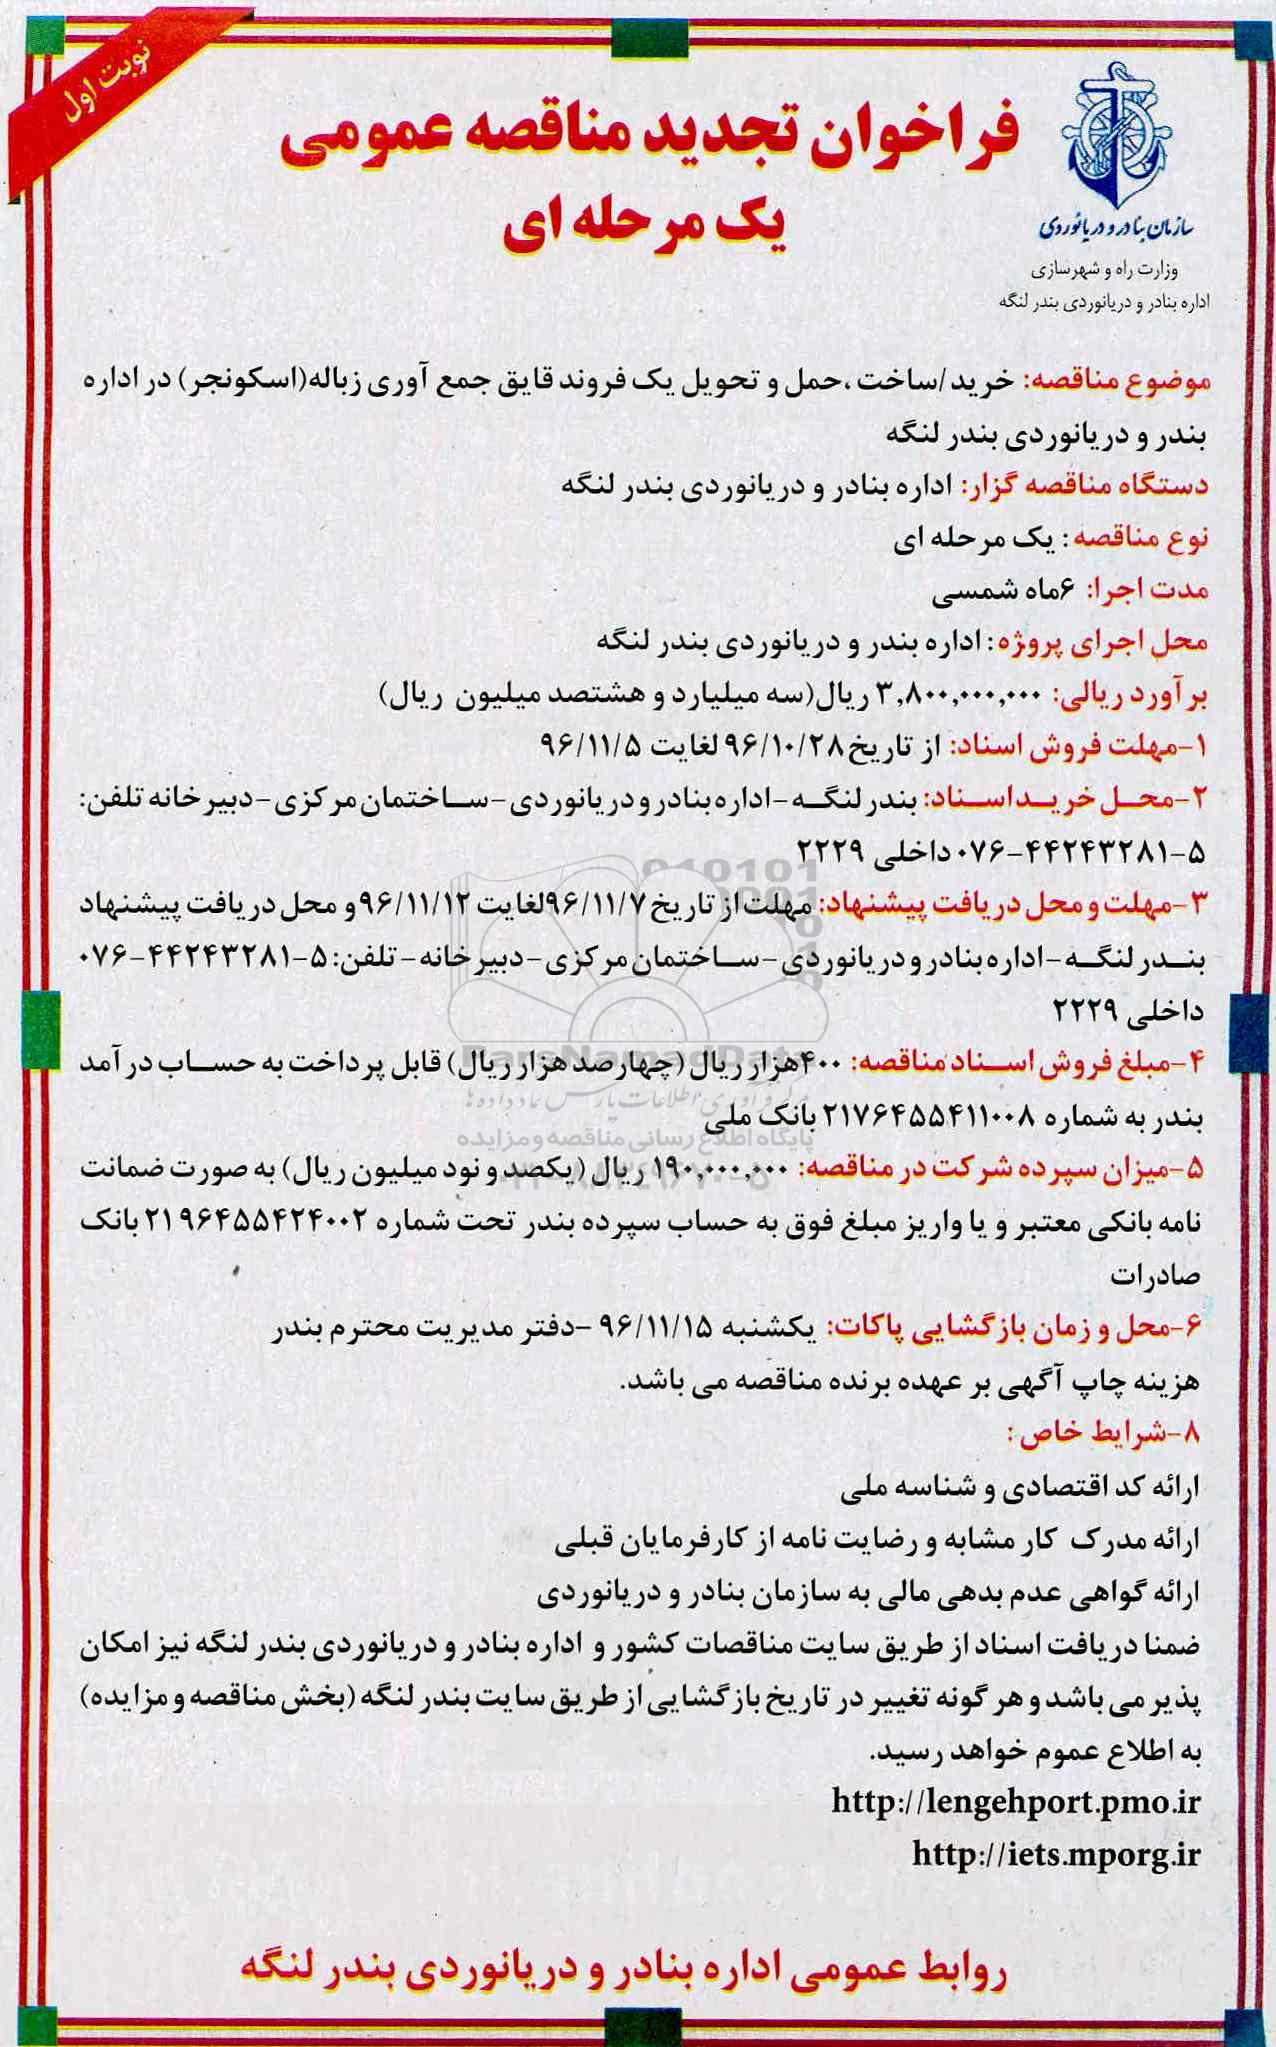 نوبت اول
فراخوان تجدید مناقصه عمومی
یک مرحله ای
سازمان بنادر و دریانوردی
وزارت راه و شهرسازی
اداره بنادر و دریانوردی بندر لنگه
موضوع مناقصه: خرید /ساخت ،حمل و تحویل یک فروند قایق جمع آوری زباله(اسکونجر) در اداره
بندر و دریانوردی بندر لنگه
دستگاه مناقصه گزار: اداره بنادر و دریانوردی بندر لنگه
نوع مناقصه : یک مرحله ای
مدت اجرا: ۶ماه شمسی
محل اجرای پروژه : اداره بندر و دریانوردی بندر لنگه
برآورد ریالی: ۳,۸۰۰,۰۰۰,۰۰۰ ریال(سه میلیارد و هشتصد میلیون ریال)
۱-مهلت فروش اسناد: از تاریخ ۹۶/۱۰/۲۸ لغایت ۹۶/۱۱/۵
۲-محل خرید اسناد: بندر لنگه -اداره بنادر و دریانوردی -ساختمان مرکزی -دبیرخانه تلفن:
۰۷۶-۴۴۲۴۳۲۸۱-۵ داخلی ۲۲۲۹
۳-مهلت و محل دریافت پیشنهاد: مهلت از تاریخ ۹۶/۱۱/۷لغایت ۹۶/۱۱/۱۲و محل دریافت پیشنهاد
بندر لنگه -اداره بنادر و دریانوردی -ساختمان مرکزی -دبیرخانه - تلفن: ۵-۴۴۲۴۳۲۸۱-۰۷۶
داخلی ۲۲۲۹
۴-مبلغ فروش اسناد مناقصه: ۴۰۰هزار ریال (چهارصد هزار ریال) قابل پرداخت به حساب درآمد
بندر به شماره ۲۱۷۶۴۵۵۴۱۱۰۰۸ بانک ملی
۵-میزان سپرده شرکت در مناقصه: ۱۹۰,۰۰۰,۰۰۰ ریال (یکصد و نود میلیون ریال) به صورت ضمانت
نامه بانکی معتبر و یا واریز مبلغ فوق به حساب سپرده بندر تحت شماره ۲۱۹۶۴۵۵۴۲۴۰۰۲ بانک
صادرات
۶-محل و زمان بازگشایی پاکات: یکشنبه ۹۶/۱۱/۱۵ -دفتر مدیریت محترم بندر
هزینه چاپ آگهی بر عهده برنده مناقصه می باشد.
۸-شرایط خاص :
ارائه کد اقتصادی و شناسه ملی
ارائه مدرک کار مشابه و رضایت نامه از کارفرمایان قبلی
ارائه گواهی عدم بدهی مالی به سازمان بنادر و دریانوردی
ضمنا دریافت اسناد از طریق سایت مناقصات کشور و اداره بنادر و دریانوردی بندر لنگه نیز امکان
پذیر می باشد و هر گونه تغییر در تاریخ بازگشایی از طریق سایت بندر لنگه (بخش مناقصه و مزایده)
به اطلاع عموم خواهد رسید.
http://lengehport.pmo.ir
http://iets.mporg.ir
روابط عمومی اداره بنادر و دریانوردی بندر لنگه
ParsNamadData
مرکز فرآوری اطلاعات پارس نماد داده ها
پایگاه اطلاع رسانی مناقصه و مزایده